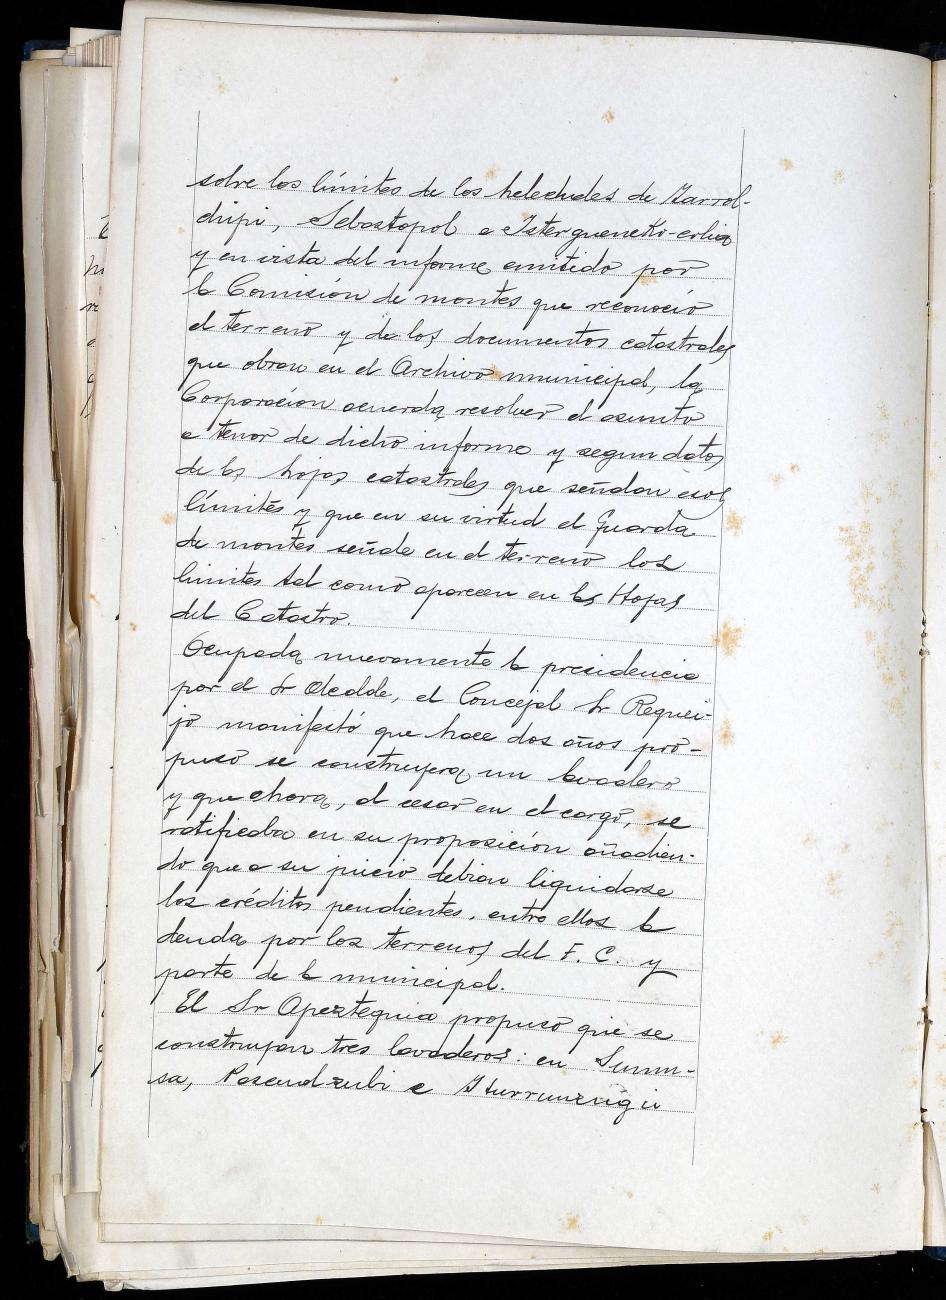 sobre los límites de los helechales de Zarrol-
chipi, Sebastopol e Istergueneko-erlia
y en vista del informe emitido por
la Comisión de montes que reconoció
el terreno y de los documentos catastrales
que obran en el Archivo municipal, la
Corporación acuerda resolver el asunto
a tenor de dicho informe y segun datos
de las hojas catastrales que señalan esos
límites y que en su virtud el Guarda
de montes señale en el terreno los
limites tal como aparecen en las Hojas
del Catastro.
Ocupada nuevamente la presidencia
por el Sr Alcalde, el Concejal Sr Requei-
jo manifestó que hace dos años pro-
puso se construyera un lavadero
y que ahora, al cesar en el cargo, se
ratificaba en su proposición añadien-
do que a su juicio debian liquidarse
los créditos pendientes, entre ellos la
deuda por los terrenos del F. C. y
parte de la municipal.
El Sr Apeztequia propuso que se
construyan tres lavaderos: en
sa, e